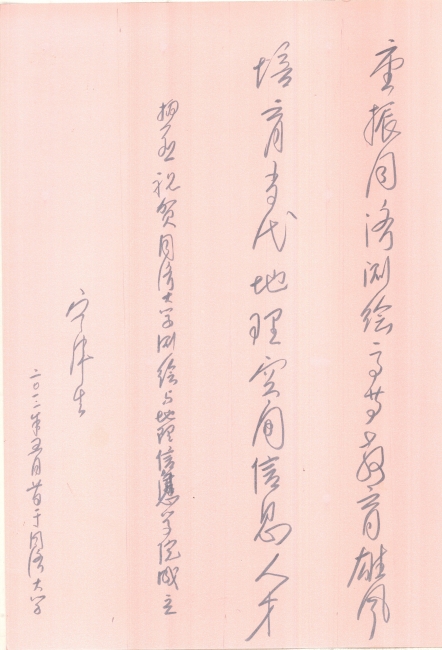 重振同济测绘高等教育雄风
培育当代地理空间信息人才
热烈祝贺同济大学测绘与地理信息学院成立
宁津生
二〇一二年五月廿日于同济大学